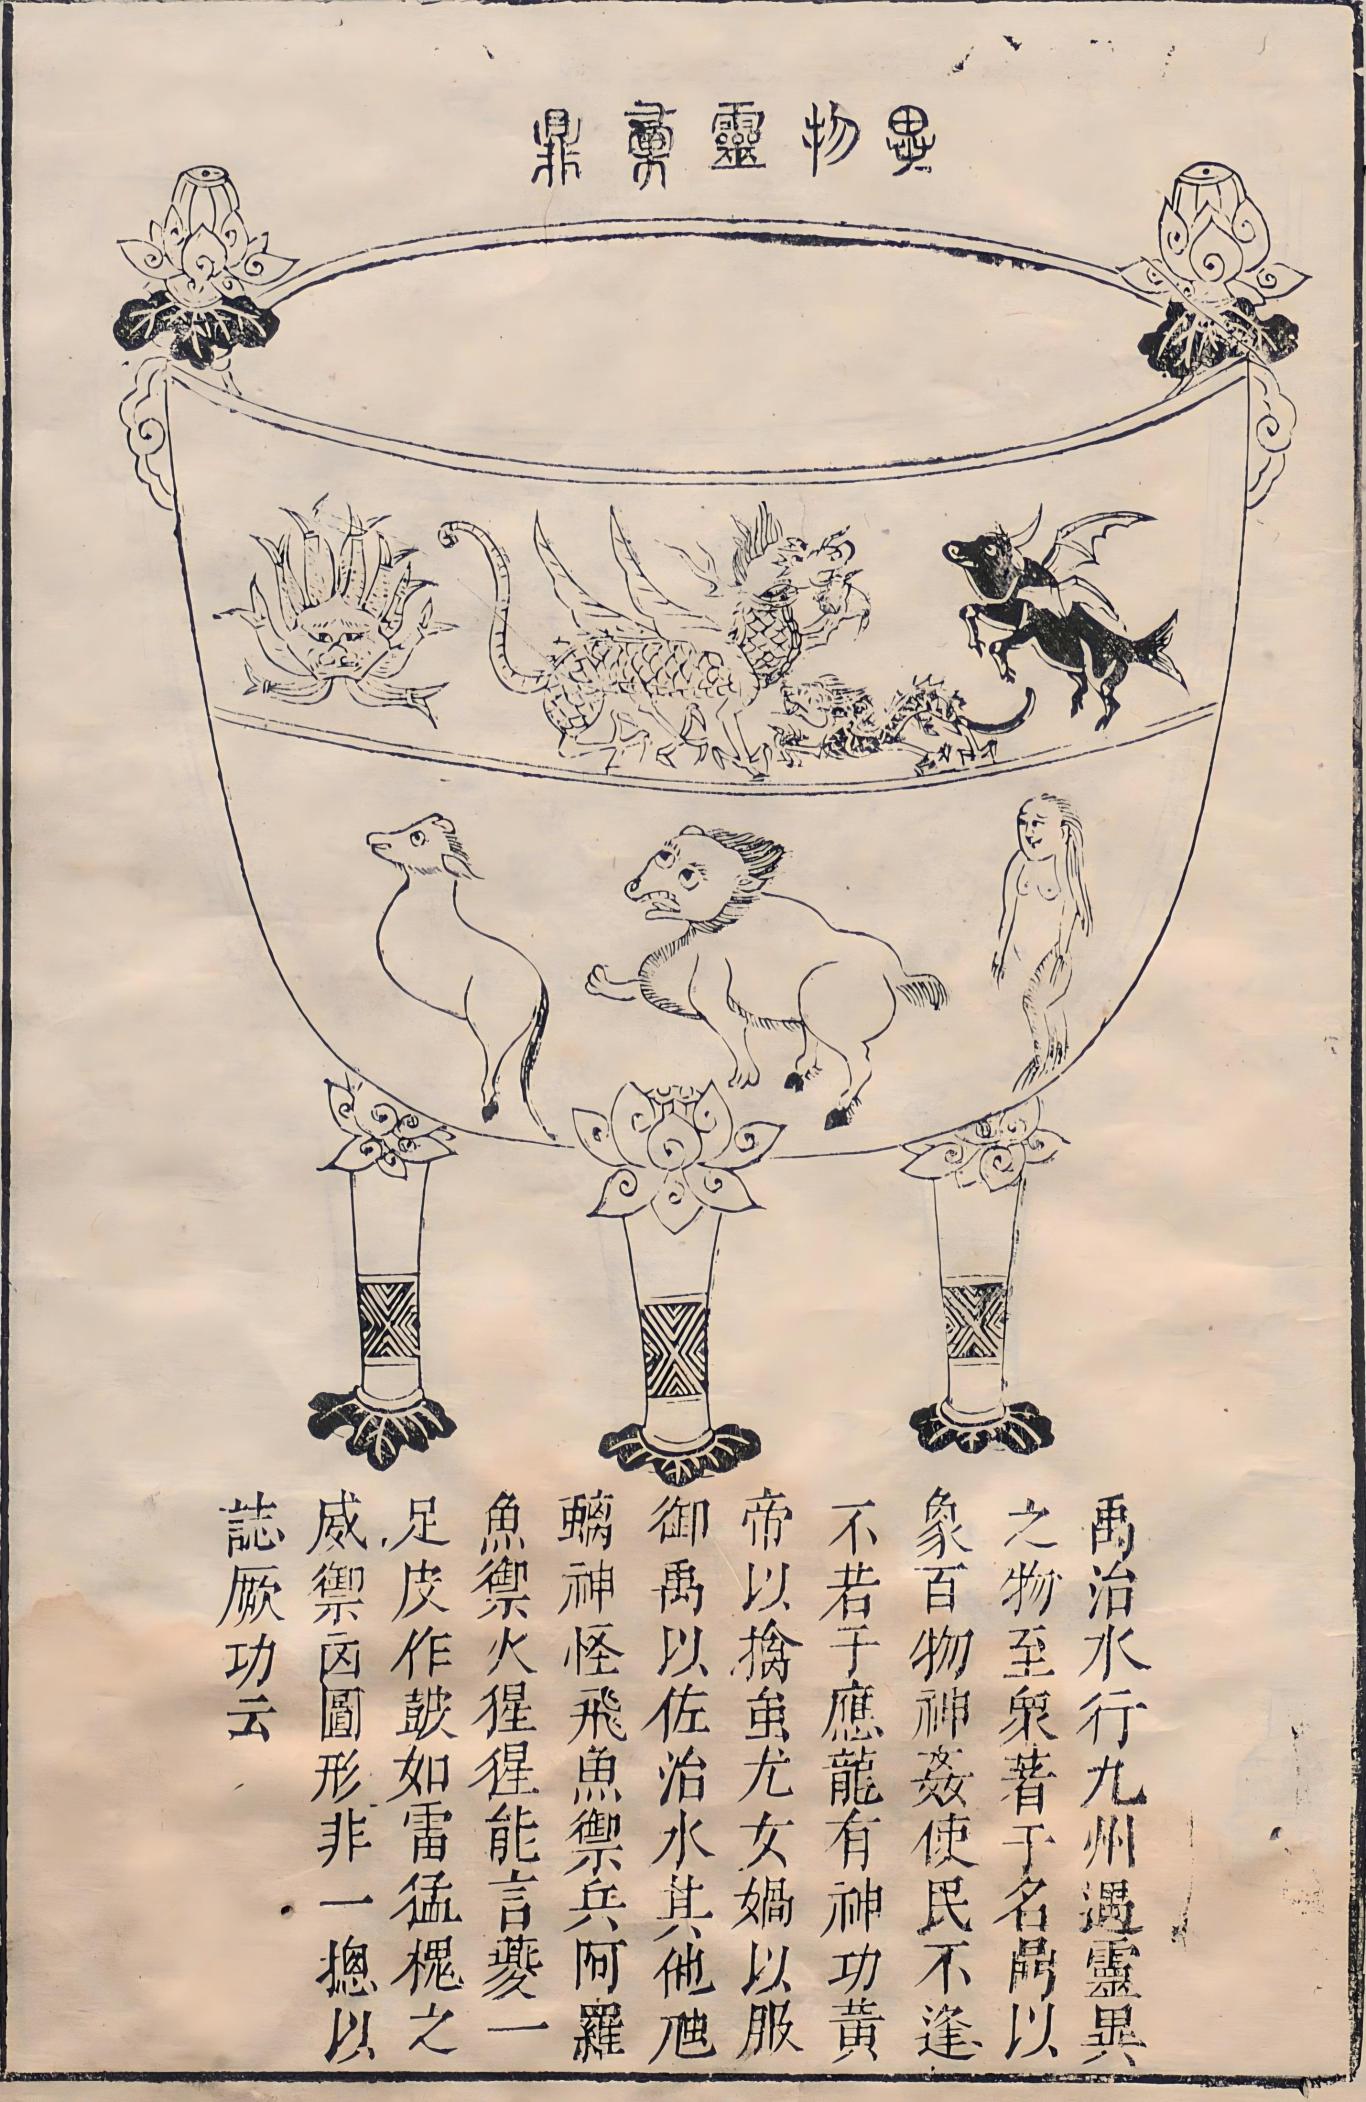 異物靈彝鼎
禹治水行九州遇靈異
之物至衆著于名鼎以
象百物神姦使民不逢
不若于應龍有神功黃
帝以擒蚩尤女媧以服
御禹以佐治水其他虺
螭神怪飛魚禦兵阿羅
魚禦火猩猩能言夔一
足皮作皷如雷猛槐之
威禦凶圖形非一摠以
誌厥功云